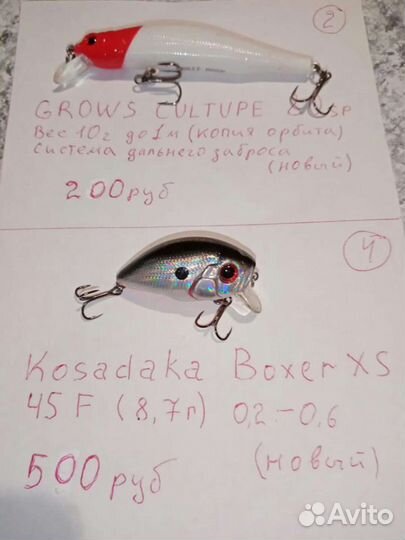 2
GROWS CULTUPE 8 SP
Вес 10г до 1м (копия орбита)
Система дальнего заброса
(новый)
200 руб
4
Kosadaka Boxer XS
45F (8,7г) 0,2-0,6
(новый)
500 руб
Avito